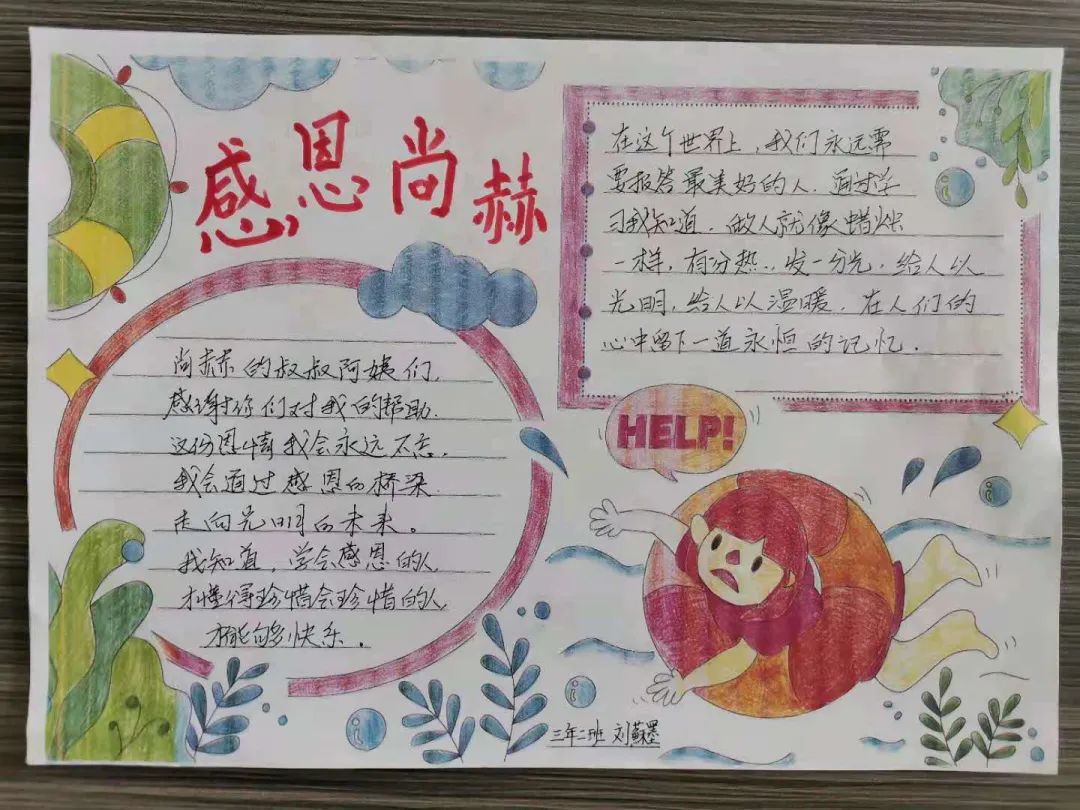 感恩尚赫
尚赫的叔叔阿姨们,
感谢你们对我的帮助.
这份恩情我会永远不忘.
我会通过感恩的桥梁
走向光明的未来。
我知道,学会感恩的人
才懂得珍惜会珍惜的人
才能够快乐.
在这个世界上,我们永远需
要报答最美好的人.通过学
习我知道.做人就像蜡烛
一样,有分热..发一分光.给人以
光明,给人以温暖.在人们的
心中留下一道永恒的记忆.
HELP!
三年二班 刘蘇墨